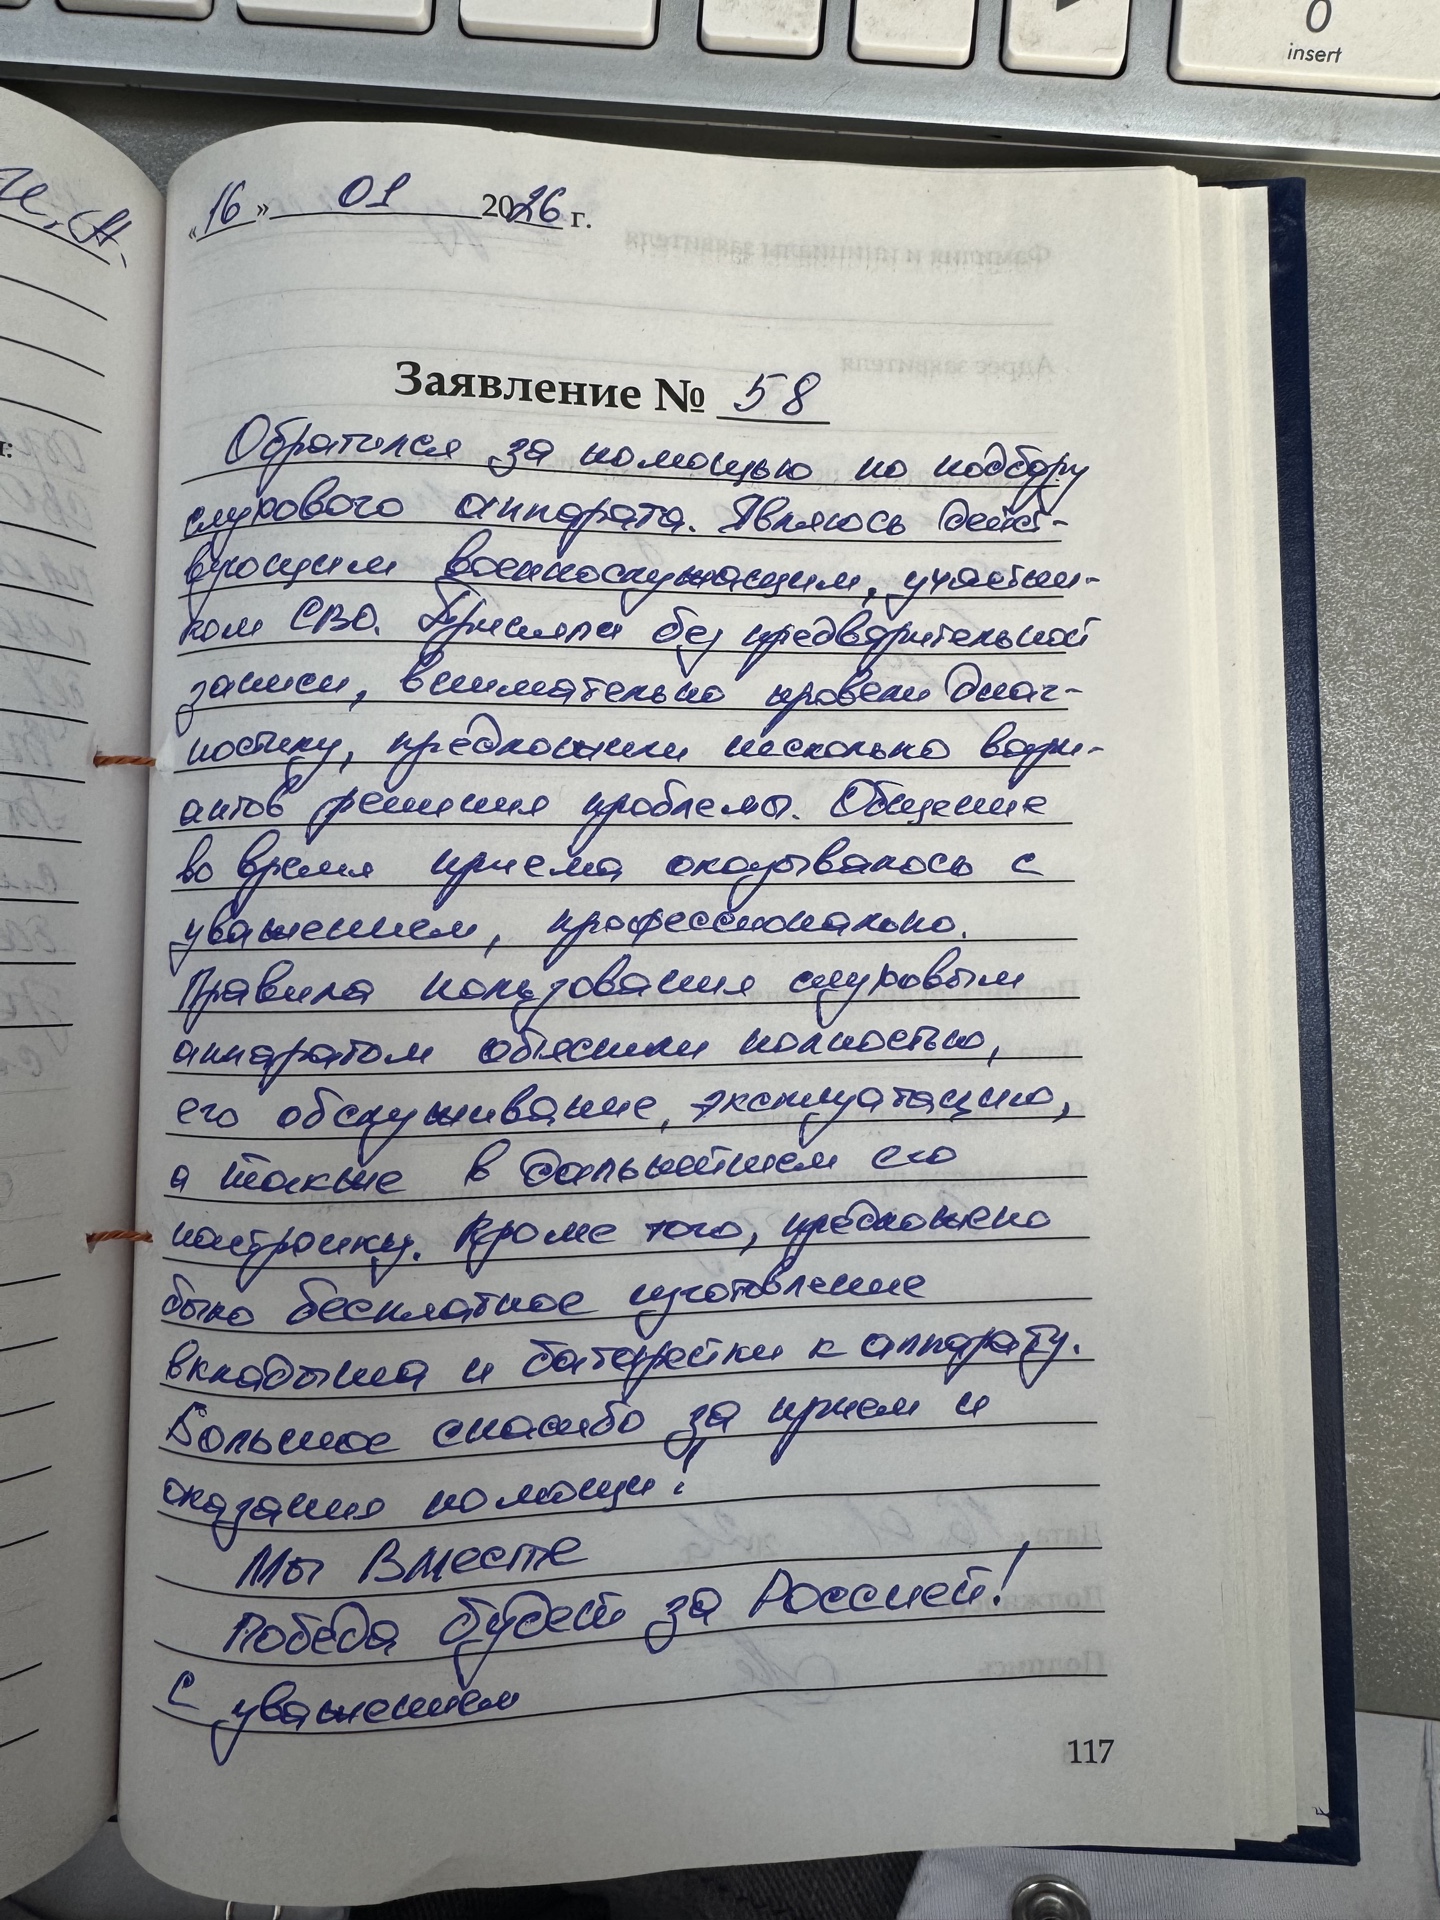 0
insert
«16» 01 2026 г.
Заявление № 58
Обратился за помощью по подбору
слухового аппарата. Являюсь дейст-
вующим военнослужащим, участни-
ком СВО. Приняли без предварительной
записи, внимательно провели диаг-
ностику, предложили несколько вари-
антов решения проблемы. Общение
во время приема оказывалось с
уважением, профессионально.
Правила пользования слуховым
аппаратом объяснили полностью,
его обслуживание, эксплуатацию,
а также в дальнейшем его
настройку. Кроме того, предложено
было бесплатное изготовление
вкладыша и батерейки к аппарату.
Большое спасибо за прием и
оказания помощи!
Мы Вместе
Победа будет за Россией!
С уважением
117